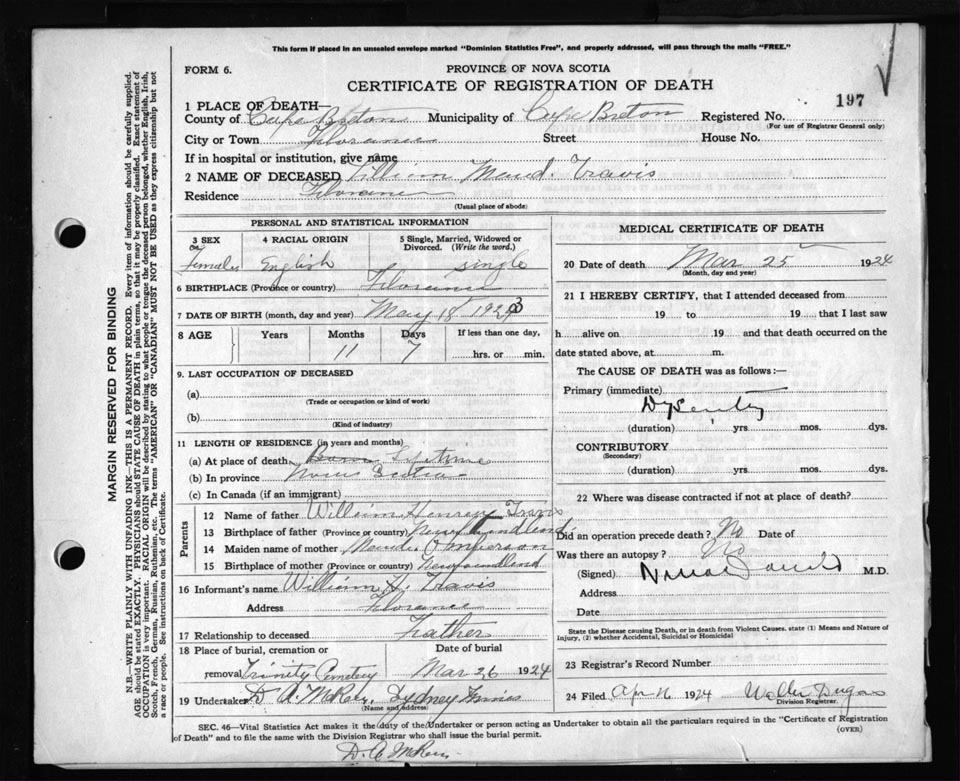 This form if placed in an unsealed envelope marked "Dominion Statistics Free", and properly addressed, will pass through the mails "FREE."
FORM 6.
PROVINCE OF NOVA SCOTIA
CERTIFICATE OF REGISTRATION OF DEATH
197
1 PLACE OF DEATH—
County of Cape Breton Municipality of Cape Breton Registered No.
(For use of Registrar General only)
City or Town Florance Street House No.
If in hospital or institution, give name
2 NAME OF DECEASED Lilliim Maud. Travis
Residence Florance
(Usual place of abode)
PERSONAL AND STATISTICAL INFORMATION
3 SEX 4 RACIAL ORIGIN 5 Single, Married, Widowed or Divorced. (Write the word.)
Female English single
6 BIRTHPLACE (Province or country) Florance
7 DATE OF BIRTH (month, day and year) May 18 1923
8 AGE Years Months Days If less than one day,
11 7 hrs. or min.
9. LAST OCCUPATION OF DECEASED
(a)
(Trade or occupation or kind of work)
(b)
(Kind of industry)
11 LENGTH OF RESIDENCE (in years and months)
(a) At place of death
(b) In province
(c) In Canada (if an immigrant)
Parents
12 Name of father William Henrey Travis
13 Birthplace of father (Province or country) Newfoundland
14 Maiden name of mother Maud.
15 Birthplace of mother (Province or country) Newfoundland
16 Informant's name William H. Travis
Address Florance
17 Relationship to deceased Father
18 Place of burial, cremation or removal Trinity Cemetery Date of burial Mar 26 1924
19 Undertaker D A McRae, Sydney Mines
(Name and address)
MEDICAL CERTIFICATE OF DEATH
20 Date of death Mar 25 1924
(Month, day and year)
21 I HEREBY CERTIFY, that I attended deceased from
19 to 19 that I last saw
h alive on 19 and that death occurred on the
date stated above, at m.
The CAUSE OF DEATH was as follows:—
Primary (immediate)
Dysentry
(duration) yrs. mos. dys.
CONTRIBUTORY
(Secondary)
(duration) yrs. mos. dys.
22 Where was disease contracted if not at place of death?
Did an operation precede death? No Date of
Was there an autopsy? No
(Signed) M.D.
Address
Date
State the Disease causing Death, or in death from Violent Causes, state (1) Means and Nature of Injury, (2) whether Accidental, Suicidal or Homicidal
23 Registrar's Record Number
24 Filed Apr 16 1924 Walter Dugas
Division Registrar.
SEC. 46—Vital Statistics Act makes it the duty of the Undertaker or person acting as Undertaker to obtain all the particulars required in the "Certificate of Registration of Death" and to file the same with the Division Registrar who shall issue the burial permit.
(OVER)
D. A McRae
MARGIN RESERVED FOR BINDING
N.B.—WRITE PLAINLY WITH UNFADING INK—THIS IS A PERMANENT RECORD. Every item of information should be carefully supplied.
AGE should be stated EXACTLY. PHYSICIANS should STATE CAUSE OF DEATH in plain terms, so that it may be properly classified. Exact statement of
OCCUPATION is very important. RACIAL ORIGIN will be described by stating to what people or tongue the deceased person belonged, whether English, Irish,
Scotch, French, German, Russian, Ruthenian, etc. The terms "AMERICAN" or "CANADIAN" MUST NOT BE USED as they express citizenship but not
a race or people. See instructions on back of Certificate.